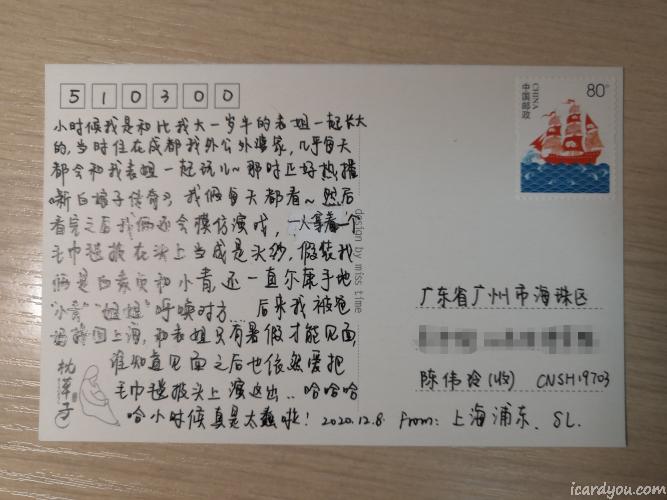 510300
中国邮政
CHINA
80分
小时候我是和比我大一岁半的表姐一起长大
的,当时住在成都我外公外婆家,几乎每天
都会和我表姐一起玩儿~那时正好热播
《新白娘子传奇》,我俩每天都看~然后
看完之后我俩还会模仿演戏,一人拿着一个
毛巾毯披在头上当成是头纱,假装我
俩是白素贞和小青,还一直尔康手地
"小青""姐姐"呼唤对方…后来我被爸
妈接回上海,和表姐只有暑假才能见面,
谁知道见面之后也依然爱把
毛巾毯披头上演这出..哈哈哈
哈小时候真是太蠢啦! 2020.12.8 From: 上海浦东、SL.
design by miss time
广东省广州市海珠区
陈伟玲(收) CNSH19703
枕草子
icardyou.com